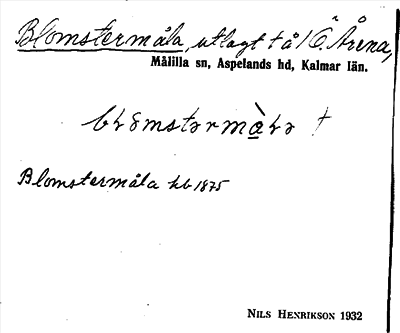 Blomstermåla, utlagt t å / Ö. Årena,
Målilla sn, Aspelands hd, Kalmar län.
Blomstermåla hb 1875
NILS HENRIKSON 1932